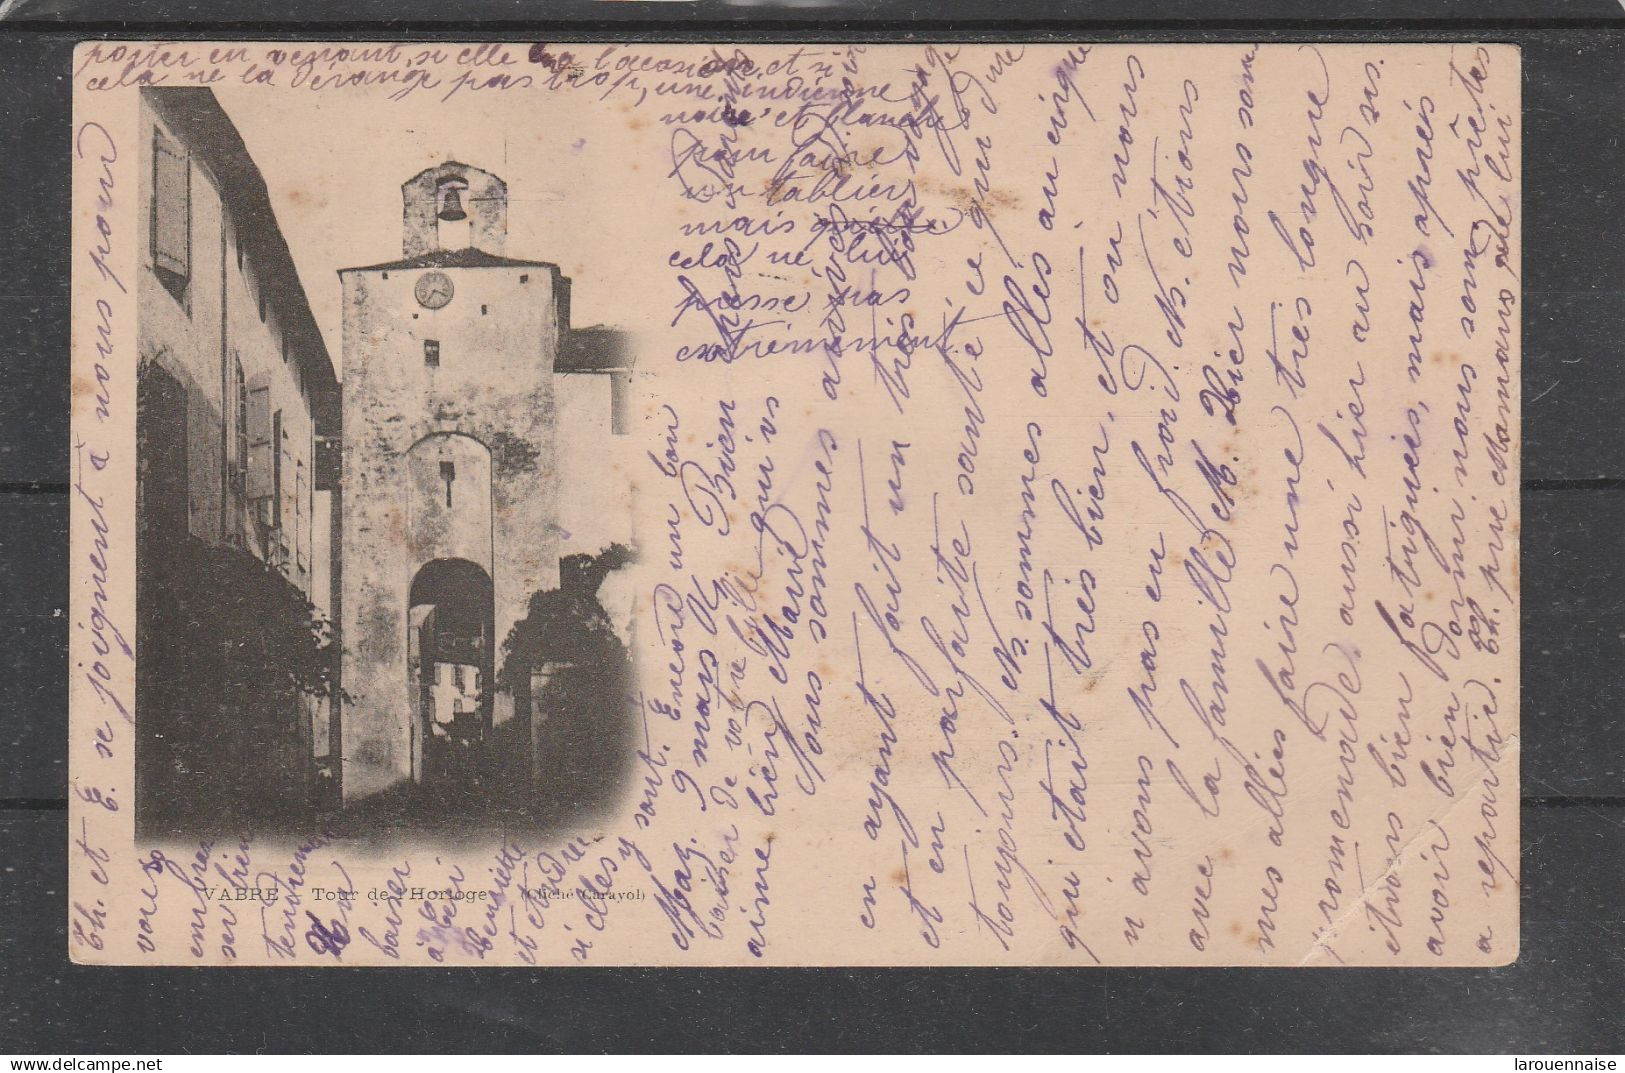 Maz. 9 mars
Bien chers Parents
Nous sommes arrivés hier soir
en ayant fait un très bon voyage
et en parfaite santé ce qui dure
toujours. Ns sommes allés au cirque
qui était très bien, et où nous
n avons pas eu froid. Ns. étions
avec la famille M. Hier nous som-
mes allés faire une très longue
promenade, aussi hier au soir ns.
étions bien fatiguées, mais après
avoir bien dormi nous som. prêtes
a repartir. Th. prie Maman de lui
porter en venant, si elle en a l'occasion, et si
cela ne la dérange pas trop, une indienne
noire et blanche
pour faire
un tablier
mais
cela ne lui
presse pas
extrêmement.
Th. et E. se joignent à nous pour
vous
embras
ser bien
tendremen
Un
baiser
à
Henriette
et André
si elles
y sont. Encore un bon
baiser de votre fille qui vs
aime bien Marie
VABRE Tour de l'Horloge (Cliché Carayol)
larouennaise